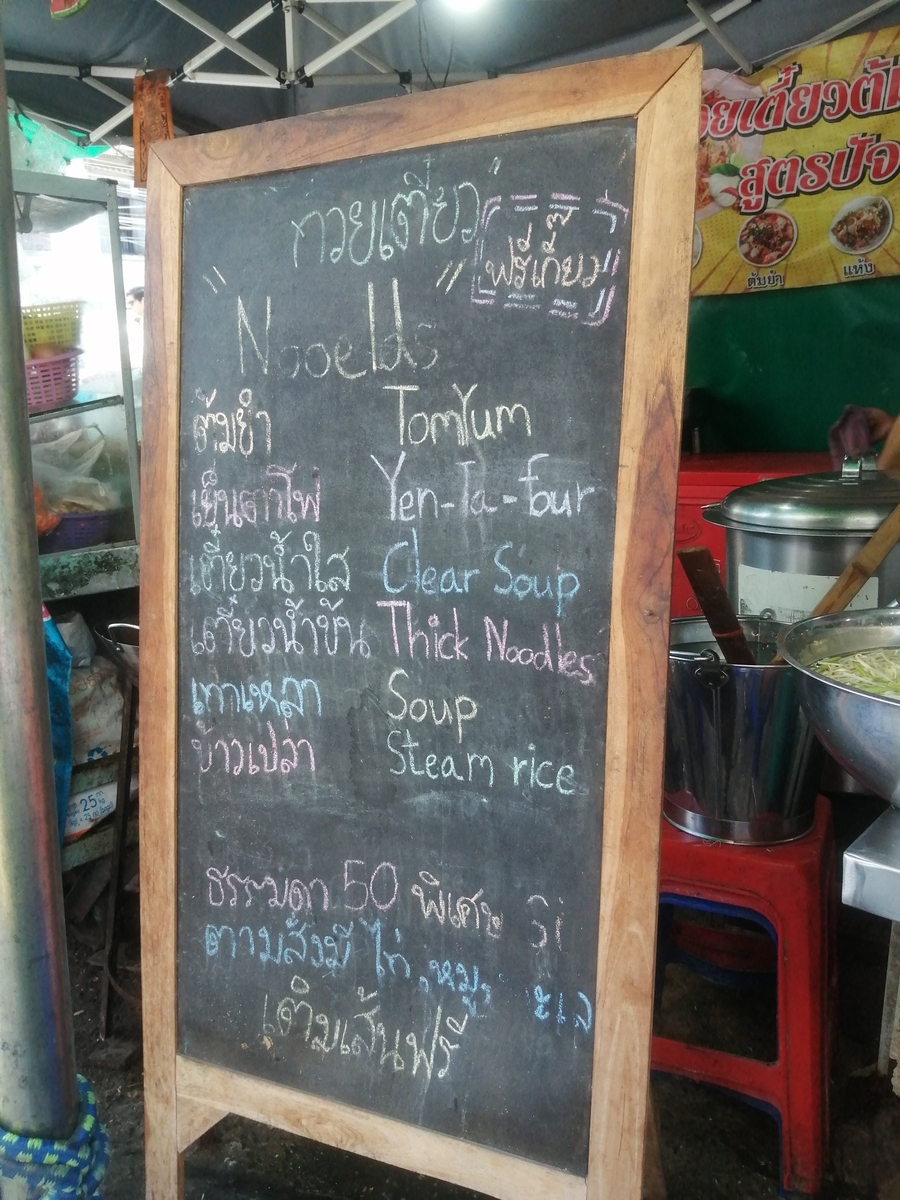 ก๋วยเตี๋ยว
ฟรีเกี๊ยว
"Nooelds"
ต้มยำ TomYum
เย็นตาโฟ Yen-Ta-four
เตี๋ยวน้ำใส Clear Soup
เตี๋ยวน้ำข้น Thick Noodles
เกาเหลา Soup
ข้าวเปล่า Steam rice
ธรรมดา 50 พิเศษ
ตามสั่งมี ไก่,หมู,
เติมเส้นฟรี
สูตร
ต้มยำ
แห้ง
25